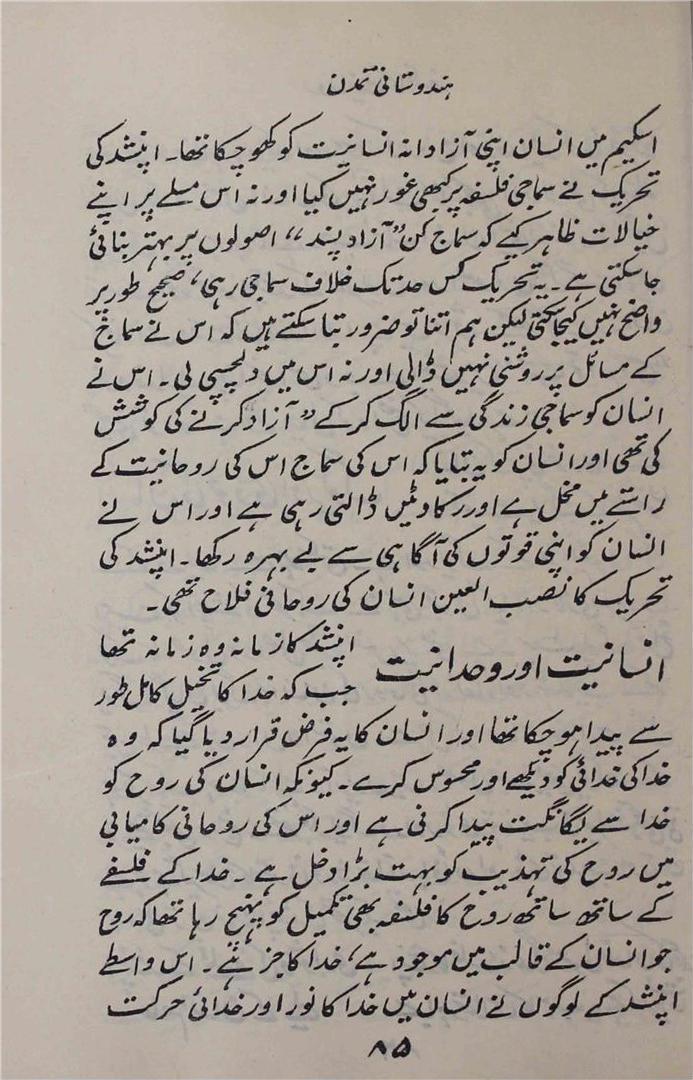 ہندوستانی تمدن
اسکیم میں انسان اپنی آزادانہ انسانیت کو کھو چکا تھا۔ اپنشد کی
تحریک نے سماجی فلسفہ پر کبھی غور نہیں کیا اور نہ اس مسلے پر اپنے
خیالات ظاہر کیے کہ سماج کن ”آزاد پسند“ اصولوں پر بہتر بنائی
جا سکتی ہے۔ یہ تحریک کس حد تک خلاف سماجی رہی، صحیح طور پر
واضح نہیں کیجا سکتی لیکن ہم اتنا تو ضرور بتا سکتے ہیں کہ اس نے سماج
کے مسائل پر روشنی نہیں ڈالی اور نہ اس میں دلچسپی لی۔ اس نے
انسان کو سماجی زندگی سے الگ کر کے ”آزاد کرنے کی کوشش
کی تھی اور انسان کو یہ بتایا کہ اس کی سماج اس کی روحانیت کے
راستے میں مخل ہے اور رکاوٹیں ڈالتی رہی ہے اور اس نے
انسان کو اپنی قوتوں کی آگاہی سے بے بہرہ رکھا۔ اپنشد کی
تحریک کا نصب العین انسان کی روحانی فلاح تھی۔
انسانیت اور وحدانیت اپنشد کا زمانہ وہ زمانہ تھا
جب کہ خدا کا تخیل کامل طور
سے پیدا ہو چکا تھا اور انسان کا یہ فرض قرار دیا گیا کہ وہ
خدا کی خدائی کو دیکھے اور محسوس کرے۔ کیونکہ انسان کی روح کو
خدا سے یگانگت پیدا کرنی ہے اور اس کی روحانی کامیابی
میں روح کی تہذیب کو بہت بڑا دخل ہے۔ خدا کے فلسفے
کے ساتھ ساتھ روح کا فلسفہ بھی تکمیل کو پہنچ رہا تھا کہ روح
جو انسان کے قالب میں موجود ہے، خدا کا جز ہے۔ اس واسطے
اپنشد کے لوگوں نے انسان میں خدا کا نور اور خدائی حرکت
۸۵